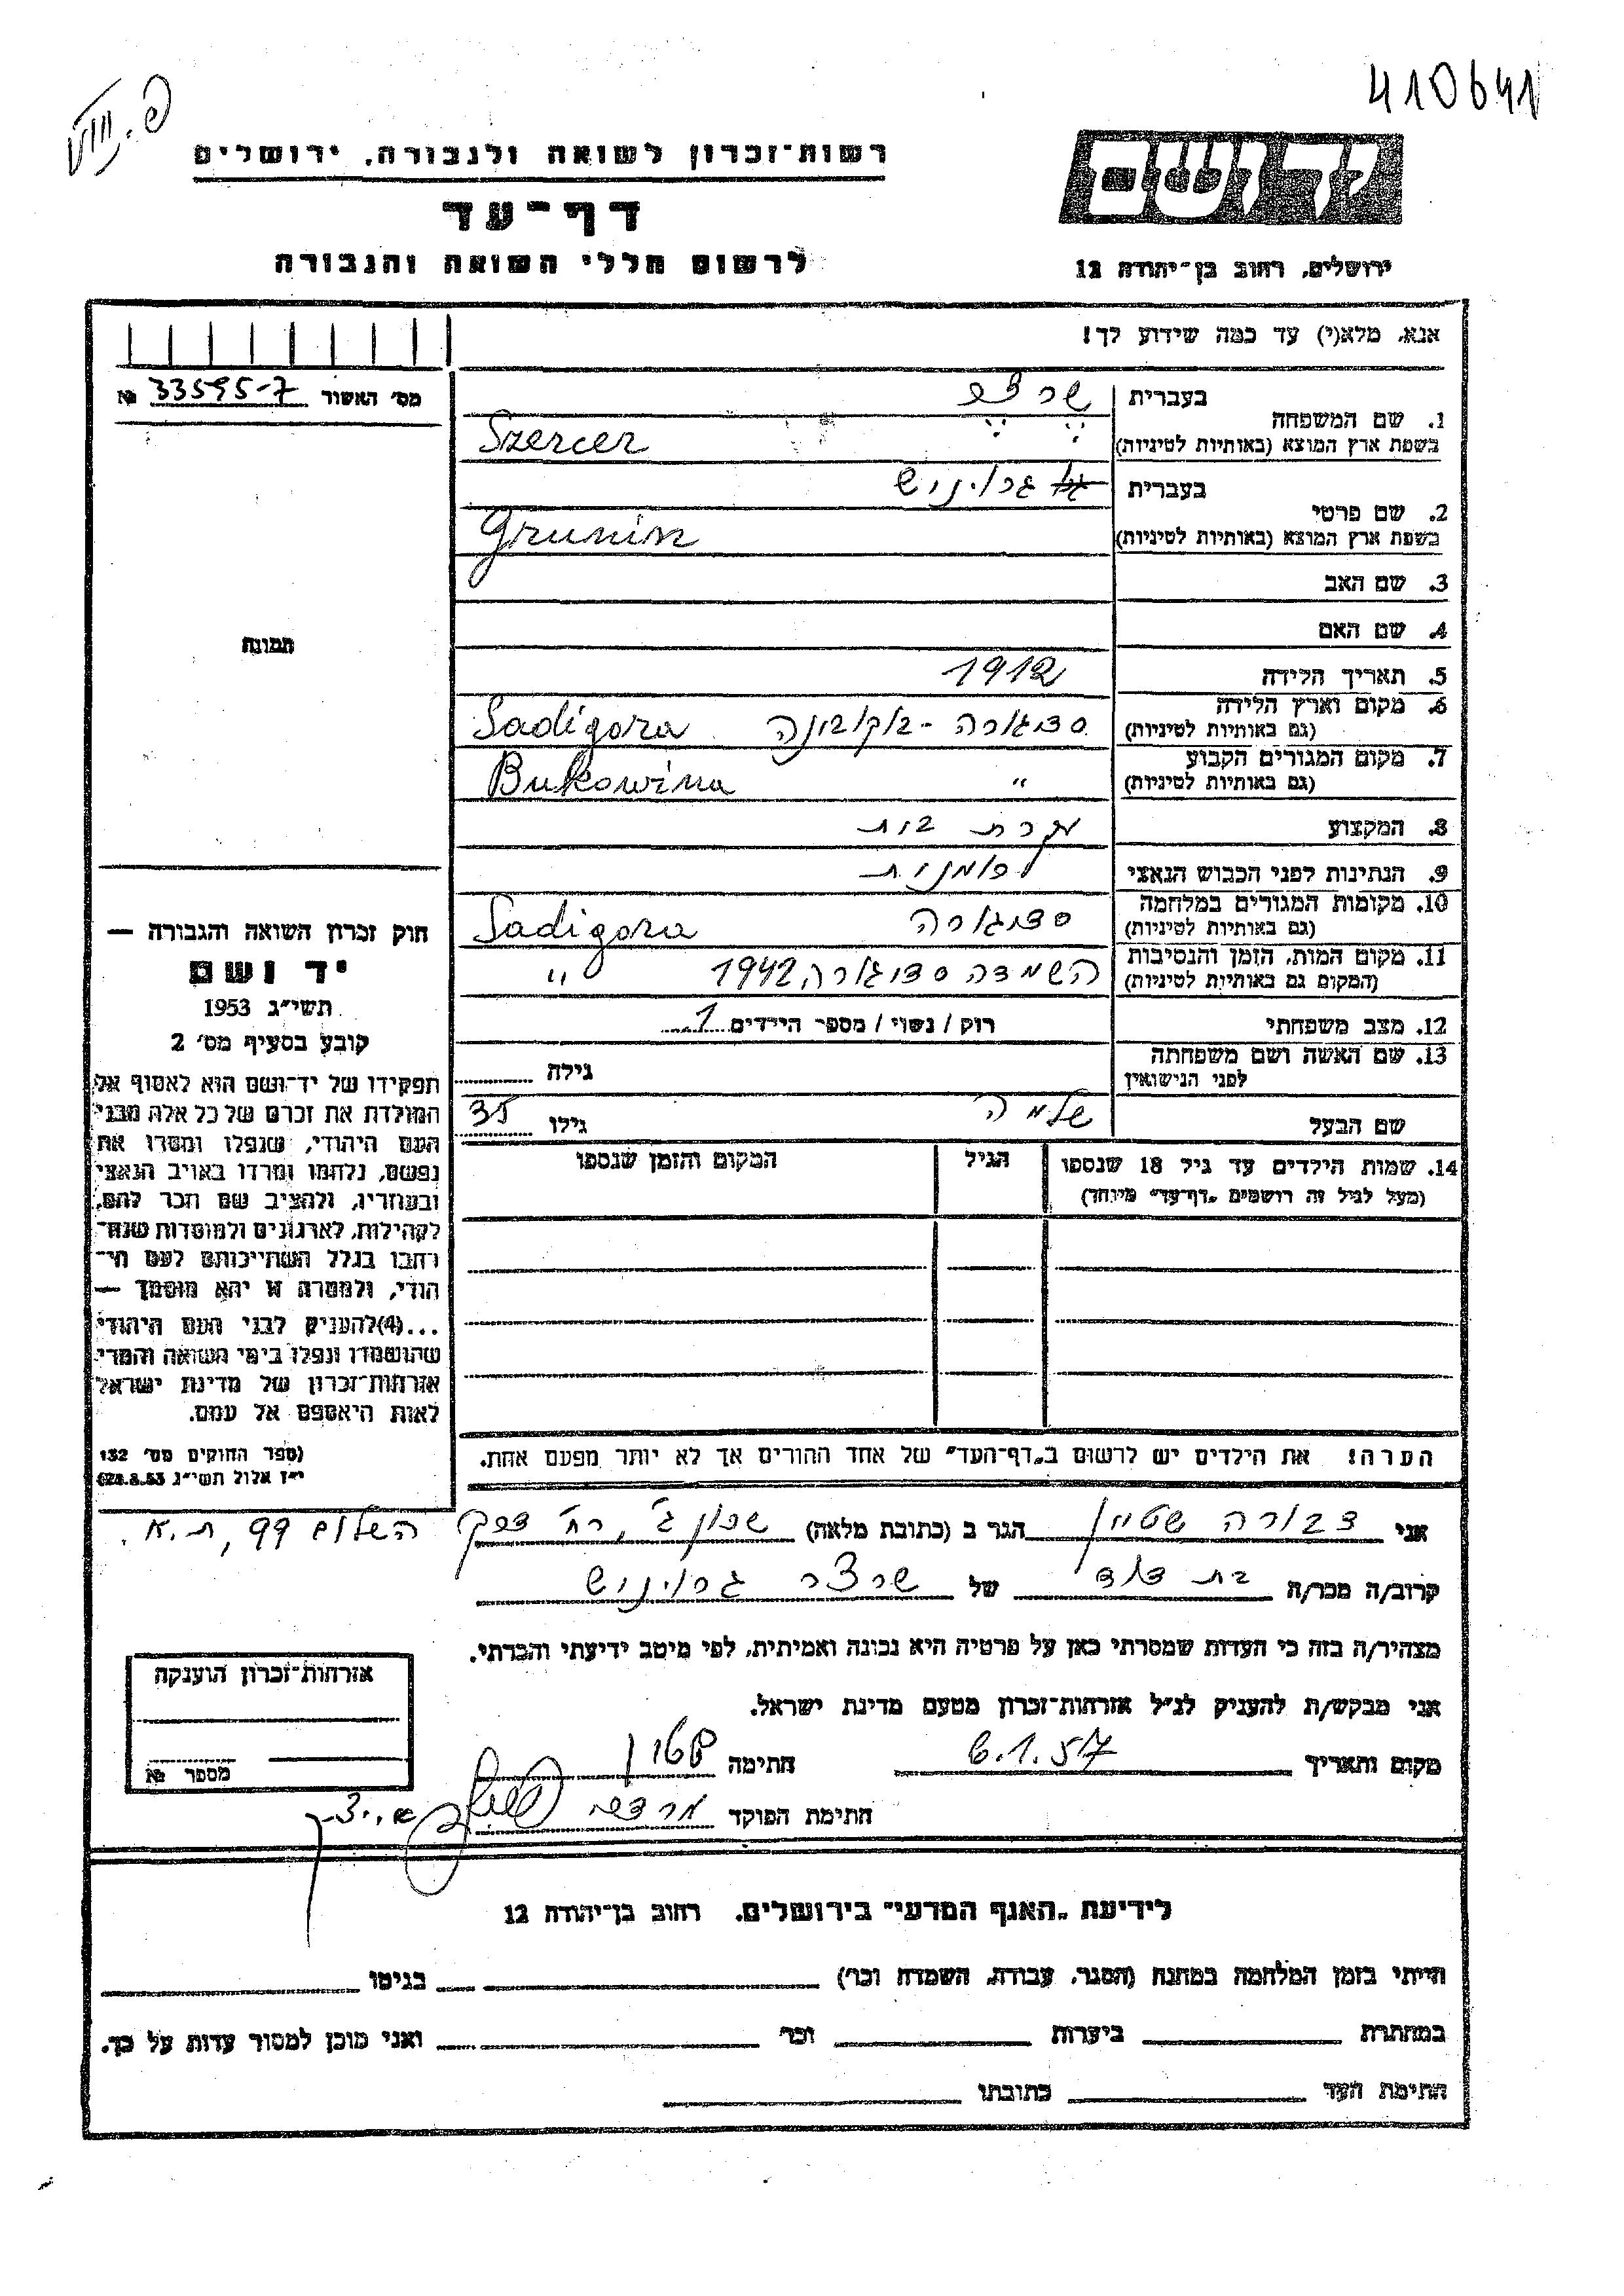 410641
רשות-זכרון לשואה ולגבורה, ירושלים
יד ושם
דף-עד
לרשום חללי השואה והגבורה
ירושלים, רחוב בן-יהודה 12
אנא, מלא(י) עד כמה שידוע לך!
מס׳ האשור 33595-7 №
1. שם המשפחה בעברית שרצר
בשפת ארץ המוצא (באותיות לטיניות) Szercer
2. שם פרטי בעברית
בשפת ארץ המוצא (באותיות לטיניות)
3. שם האב
4. שם האם
5. תאריך הלידה 1912
6. מקום וארץ הלידה (גם באותיות לטיניות) סדיגורה - בוקובינה Sadigora
7. מקום המגורים הקבוע (גם באותיות לטיניות) " Bukowina
8. המקצוע עקרת בית
9. הנתינות לפני הכבוש הנאצי רומנית
10. מקומות המגורים במלחמה (גם באותיות לטיניות) סדיגורה Sadigora
11. מקום המות, הזמן והנסיבות (המקום גם באותיות לטיניות) השמדה סדיגורה, 1942 "
12. מצב משפחתי רוק / נשוי / מספר הילדים 1
13. שם האשה ושם משפחתה לפני הנישואין גילה
שם הבעל שלמה גילו 35
14. שמות הילדים עד גיל 18 שנספו הגיל המקום והזמן שנספו
(מעל לגיל זה רושמים "דף-עד" מיוחד)
תמונה
חוק זכרון השואה והגבורה —
יד ושם
תשי״ג 1953
קובע בסעיף מס׳ 2
תפקידו של יד-ושם הוא לאסוף אל
המולדת את זכרם של כל אלה מבני
העם היהודי, שנפלו ומסרו את
נפשם, נלחמו ומרדו באויב הנאצי
ובעוזריו, ולהציב שם וזכר להם,
לקהילות, לארגונים ולמוסדות שנח-
רבו בגלל השתייכותם לעם הי-
הודי, ולמטרה זו יהא מוסמך —
...(4) להעניק לבני העם היהודי
שהושמדו ונפלו בימי השואה והמרי
אזרחות-זכרון של מדינת ישראל
לאות היאספם אל עמם.
(ספר החוקים מס׳ 132
י״ז אלול תשי״ג 28.8.53)
הערה! את הילדים יש לרשום ב"דף-העד" של אחד ההורים אך לא יותר מפעם אחת.
אני דבורה שטיין הגר ב (כתובת מלאה) שכון ג׳, רח׳ דרך השלום 99, ת.א.
קרוב/ה מכר/ה בת דוד של שרצר
מצהיר/ה בזה כי העדות שמסרתי כאן על פרטיה היא נכונה ואמיתית, לפי מיטב ידיעתי והכרתי.
אני מבקש/ת להעניק לנ״ל אזרחות-זכרון מטעם מדינת ישראל.
מקום ותאריך 6.1.57 חתימה שטיין
חתימת הפוקד מרדכי
אזרחות-זכרון הוענקה
מספר №
לידיעת "האגף המדעי" בירושלים. רחוב בן-יהודה 12
הייתי בזמן המלחמה במחנה (הסגר, עבודה, השמדה וכו׳) בגיטו
במחתרת ביערות וכו׳ ואני מוכן למסור עדות על כך.
חתימת העד כתובתו